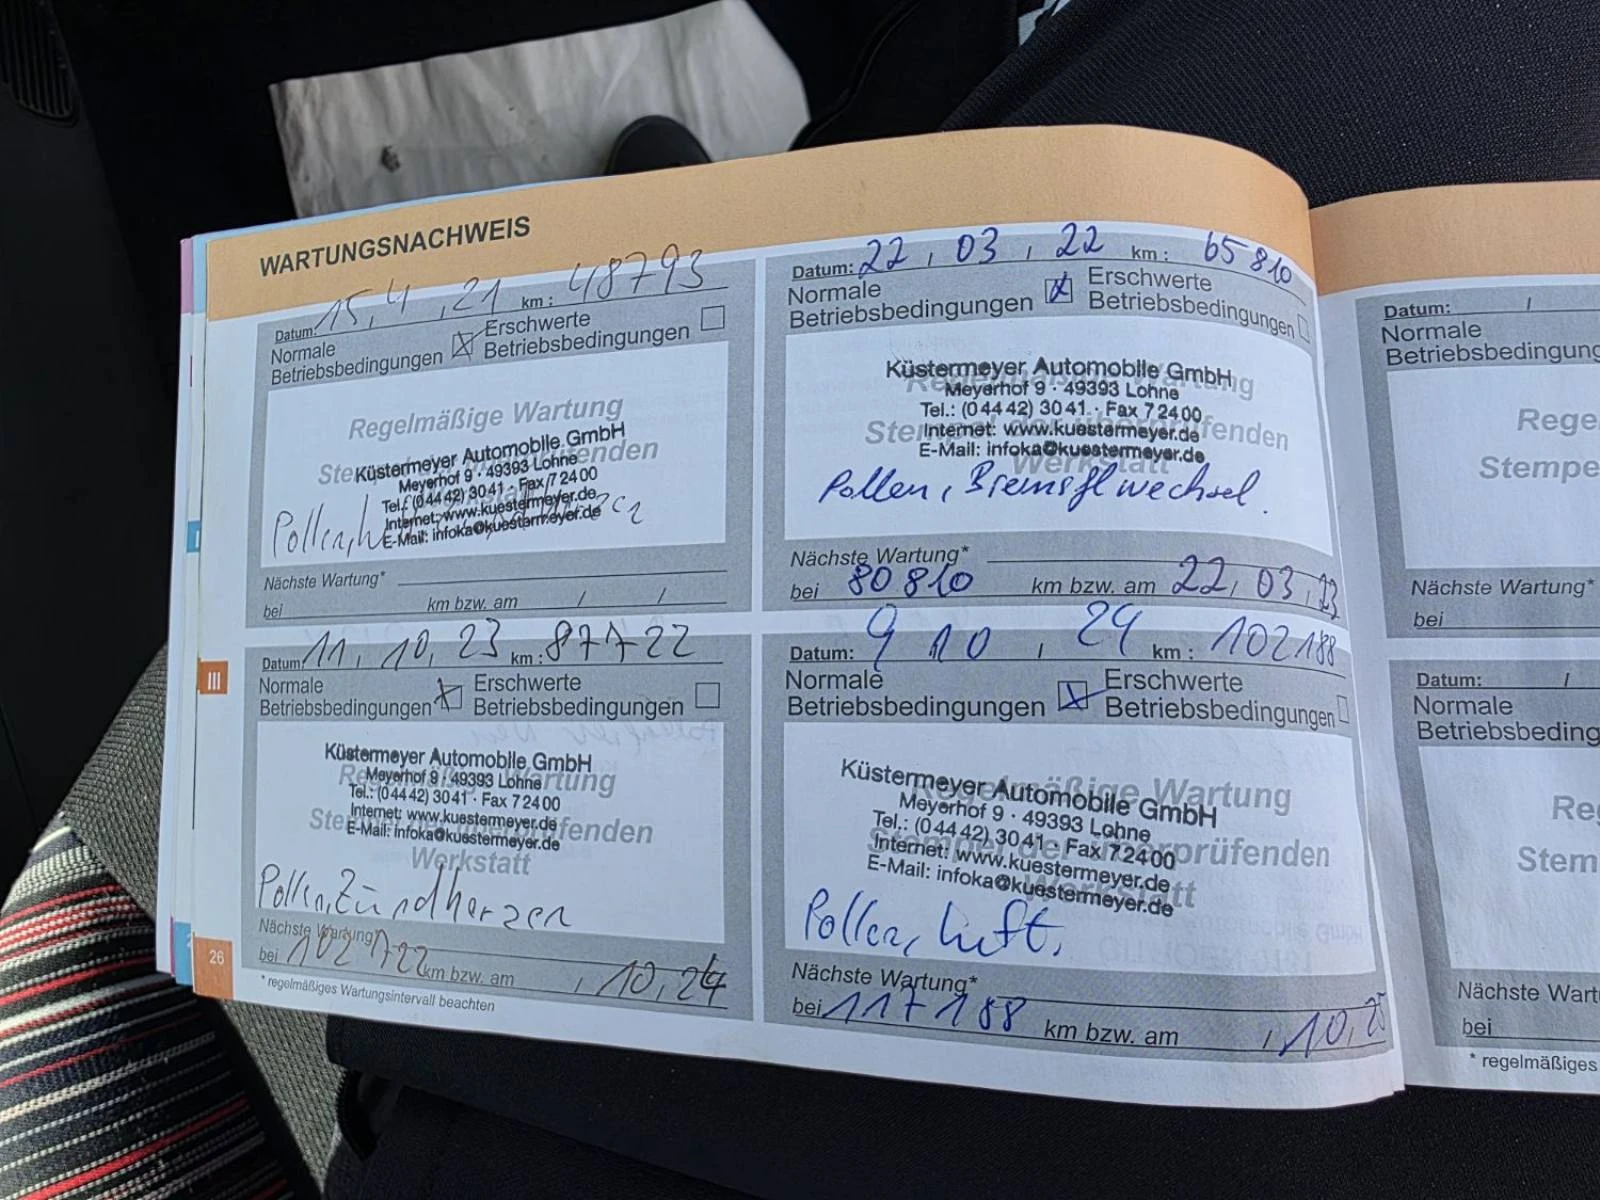 WARTUNGSNACHWEIS
Datum: 15, 4, 21 km: 48793
Normale Betriebsbedingungen
Erschwerte Betriebsbedingungen
Regelmäßige Wartung
Küstermeyer Automobile GmbH
Meyerhof 9 · 49393 Lohne
Tel.: (0 44 42) 30 41 · Fax 7 24 00
Internet: www.kuestermeyer.de
E-Mail: infoka@kuestermeyer.de
Pollen,
Nächste Wartung*
bei km bzw. am / /
Datum: 22, 03, 22 km: 65810
Normale Betriebsbedingungen
Erschwerte Betriebsbedingungen
Küstermeyer Automobile GmbH
Meyerhof 9 · 49393 Lohne
Tel.: (0 44 42) 30 41 · Fax 7 24 00
Internet: www.kuestermeyer.de
E-Mail: infoka@kuestermeyer.de
Werkstatt
Pollen, Bremsflwechsel.
Nächste Wartung*
bei 80810 km bzw. am 22, 03, 23
Datum: 11, 10, 23 km: 87722
Normale Betriebsbedingungen
Erschwerte Betriebsbedingungen
Küstermeyer Automobile GmbH
Meyerhof 9 · 49393 Lohne
Tel.: (0 44 42) 30 41 · Fax 7 24 00
Internet: www.kuestermeyer.de
E-Mail: infoka@kuestermeyer.de
Werkstatt
Pollen, Zündkerzen
Nächste Wartung*
bei 102722 km bzw. am , 10, 24
* regelmäßiges Wartungsintervall beachten
Datum: 9 10 , 24 km: 102188
Normale Betriebsbedingungen
Erschwerte Betriebsbedingungen
Regelmäßige Wartung
Küstermeyer Automobile GmbH
Meyerhof 9 · 49393 Lohne
Tel.: (0 44 42) 30 41 · Fax 7 24 00
Stempel der überprüfenden
Internet: www.kuestermeyer.de
E-Mail: infoka@kuestermeyer.de
Werkstatt
Pollen, Luft,
Nächste Wartung*
bei 117188 km bzw. am , 10, 25
III
26
Datum: /
Normale
Betriebsbedingung
Rege
Stempe
Nächste Wartung*
bei
Datum: /
Normale
Betriebsbeding
Re
Stem
Nächste Wart
bei
* regelmäßiges